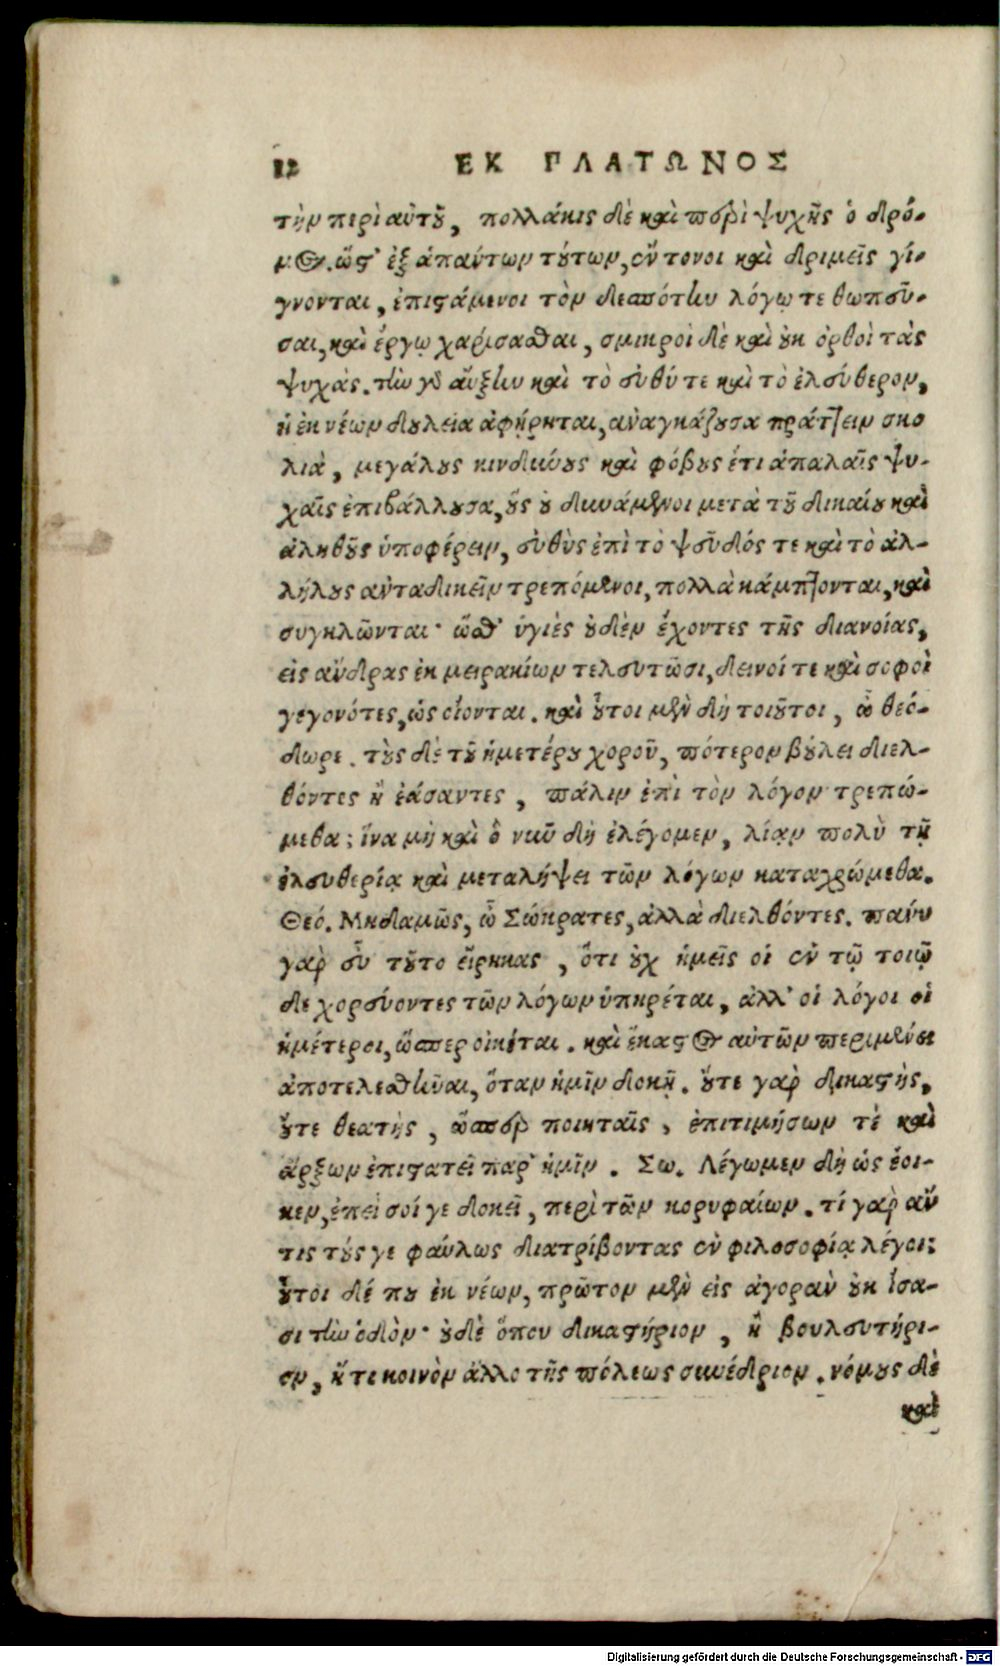 12 ΕΚ ΠΛΑΤΩΝΟΣ
τὴν περὶ αὐτοῦ, πολλάκις δὲ καὶ περὶ ψυχῆς ὁ δρό-
μος. ὥστ' ἐξ ἁπάντων τούτων, ἔντονοι καὶ δριμεῖς γί-
γνονται, ἐπιστάμενοι τὸν δεσπότην λόγῳ τε θωπεῦ-
σαι, καὶ ἔργῳ χαρίσασθαι, σμικροὶ δὲ καὶ οὐκ ὀρθοὶ τὰς
ψυχάς. τὴν γὰρ αὔξην καὶ τὸ εὐθύ τε καὶ τὸ ἐλεύθερον,
ἡ ἐκ νέων δουλεία ἀφῄρηται, ἀναγκάζουσα πράττειν σκο
λιὰ, μεγάλους κινδύνους καὶ φόβους ἔτι ἁπαλαῖς ψυ-
χαῖς ἐπιβάλλουσα, οὓς οὐ δυνάμενοι μετὰ τοῦ δικαίου καὶ
ἀληθοῦς ὑποφέρειν, εὐθὺς ἐπὶ τὸ ψεῦδός τε καὶ τὸ ἀλ-
λήλους ἀνταδικεῖν τρεπόμενοι, πολλὰ κάμπτονται, καὶ
συγκλῶνται· ὥσθ' ὑγιὲς οὐδὲν ἔχοντες τῆς διανοίας,
εἰς ἄνδρας ἐκ μειρακίων τελευτῶσι, δεινοί τε καὶ σοφοὶ
γεγονότες, ὡς οἴονται. καὶ οὗτοι μὲν δὴ τοιοῦτοι, ὦ θεό-
δωρε. τοὺς δὲ τοῦ ἡμετέρου χοροῦ, πότερον βούλει διελ-
θόντες ἢ ἐάσαντες, πάλιν ἐπὶ τὸν λόγον τρεπώ-
μεθα; ἵνα μὴ καὶ ὃ νῦν δὴ ἐλέγομεν, λίαν πολὺ τῇ
ἐλευθερίᾳ καὶ μεταλήψει τῶν λόγων καταχρώμεθα.
Θεό. Μηδαμῶς, ὦ Σώκρατες, ἀλλὰ διελθόντες. πάνυ
γὰρ εὖ τοῦτο εἴρηκας, ὅτι οὐχ ἡμεῖς οἱ ἐν τῷ τοιῷ
δε χορεύοντες τῶν λόγων ὑπηρέται, ἀλλ' οἱ λόγοι οἱ
ἡμέτεροι, ὥσπερ οἰκέται. καὶ ἕκαστος αὐτῶν περιμένει
ἀποτελεσθῆναι, ὅταν ἡμῖν δοκῇ. οὔτε γὰρ δικαστὴς,
οὔτε θεατὴς, ὥσπερ ποιηταῖς, ἐπιτιμήσων τὲ καὶ
ἄρξων ἐπιστατεῖ παρ' ἡμῖν. Σω. Λέγωμεν δὴ ὡς ἔοι-
κεν, ἐπεὶ σοί γε δοκεῖ, περὶ τῶν κορυφαίων. τί γὰρ ἄν
τις τούς γε φαύλως διατρίβοντας ἐν φιλοσοφίᾳ λέγοι;
οὗτοι δέ που ἐκ νέων, πρῶτον μὲν εἰς ἀγορὰν οὐκ ἴσα-
σι τὴν ὁδὸν· οὐδὲ ὅπου δικαστήριον, ἢ βουλευτήρι-
ον, ἤ τι κοινὸν ἄλλο τῆς πόλεως συνέδριον. νόμους δὲ
καὶ
Digitalisierung gefördert durch die Deutsche Forschungsgemeinschaft - DFG